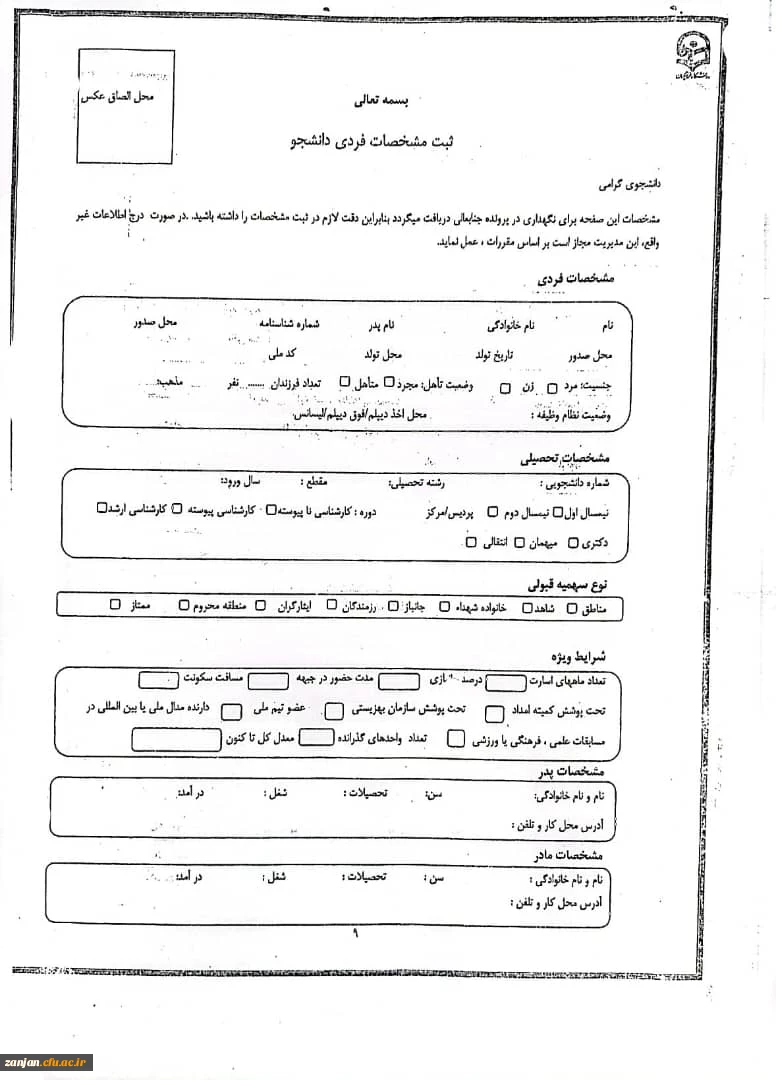 محل الصاق عکس
بسمه تعالی
ثبت مشخصات فردی دانشجو
دانشجوی گرامی
مشخصات این صفحه برای نگهداری در پرونده جنابعالی دریافت میگردد بنابراین دقت لازم در ثبت مشخصات را داشته باشید. .در صورت درج اطلاعات غیر
واقع، این مدیریت مجاز است بر اساس مقررات ، عمل نماید.
مشخصات فردی
نام نام خانوادگی نام پدر شماره شناسنامه محل صدور
محل صدور تاریخ تولد محل تولد کد ملی
جنسیت: مرد □ زن □ وضعیت تأهل: مجرد □ متأهل □ تعداد فرزندان ....... نفر مذهب:
وضعیت نظام وظیفه : محل اخذ دیپلم/فوق دیپلم/لیسانس.
مشخصات تحصیلی
شماره دانشجویی : رشته تحصیلی: مقطع : سال ورود:
نیمسال اول □ نیمسال دوم □ پردیس/مرکز دوره : کارشناسی نا پیوسته □ کارشناسی پیوسته □ کارشناسی ارشد □
دکتری □ میهمان □ انتقالی □
نوع سهمیه قبولی
مناطق □ شاهد □ خانواده شهداء □ جانباز □ رزمندگان □ ایثارگران □ منطقه محروم □ ممتاز □
شرایط ویژه
تعداد ماههای اسارت درصد مدت حضور در جبهه مسافت سکونت
تحت پوشش کمیته امداد تحت پوشش سازمان بهزیستی عضو تیم ملی دارنده مدال ملی یا بین المللی در
مسابقات علمی ، فرهنگی یا ورزشی تعداد واحدهای گذرانده معدل کل تا کنون
مشخصات پدر
نام و نام خانوادگی: سن: تحصیلات : شغل : در آمد:
آدرس محل کار و تلفن :
مشخصات مادر
نام و نام خانوادگی : سن : تحصیلات : شغل : در آمد:
آدرس محل کار و تلفن :
۹
zanjan.cfu.ac.ir